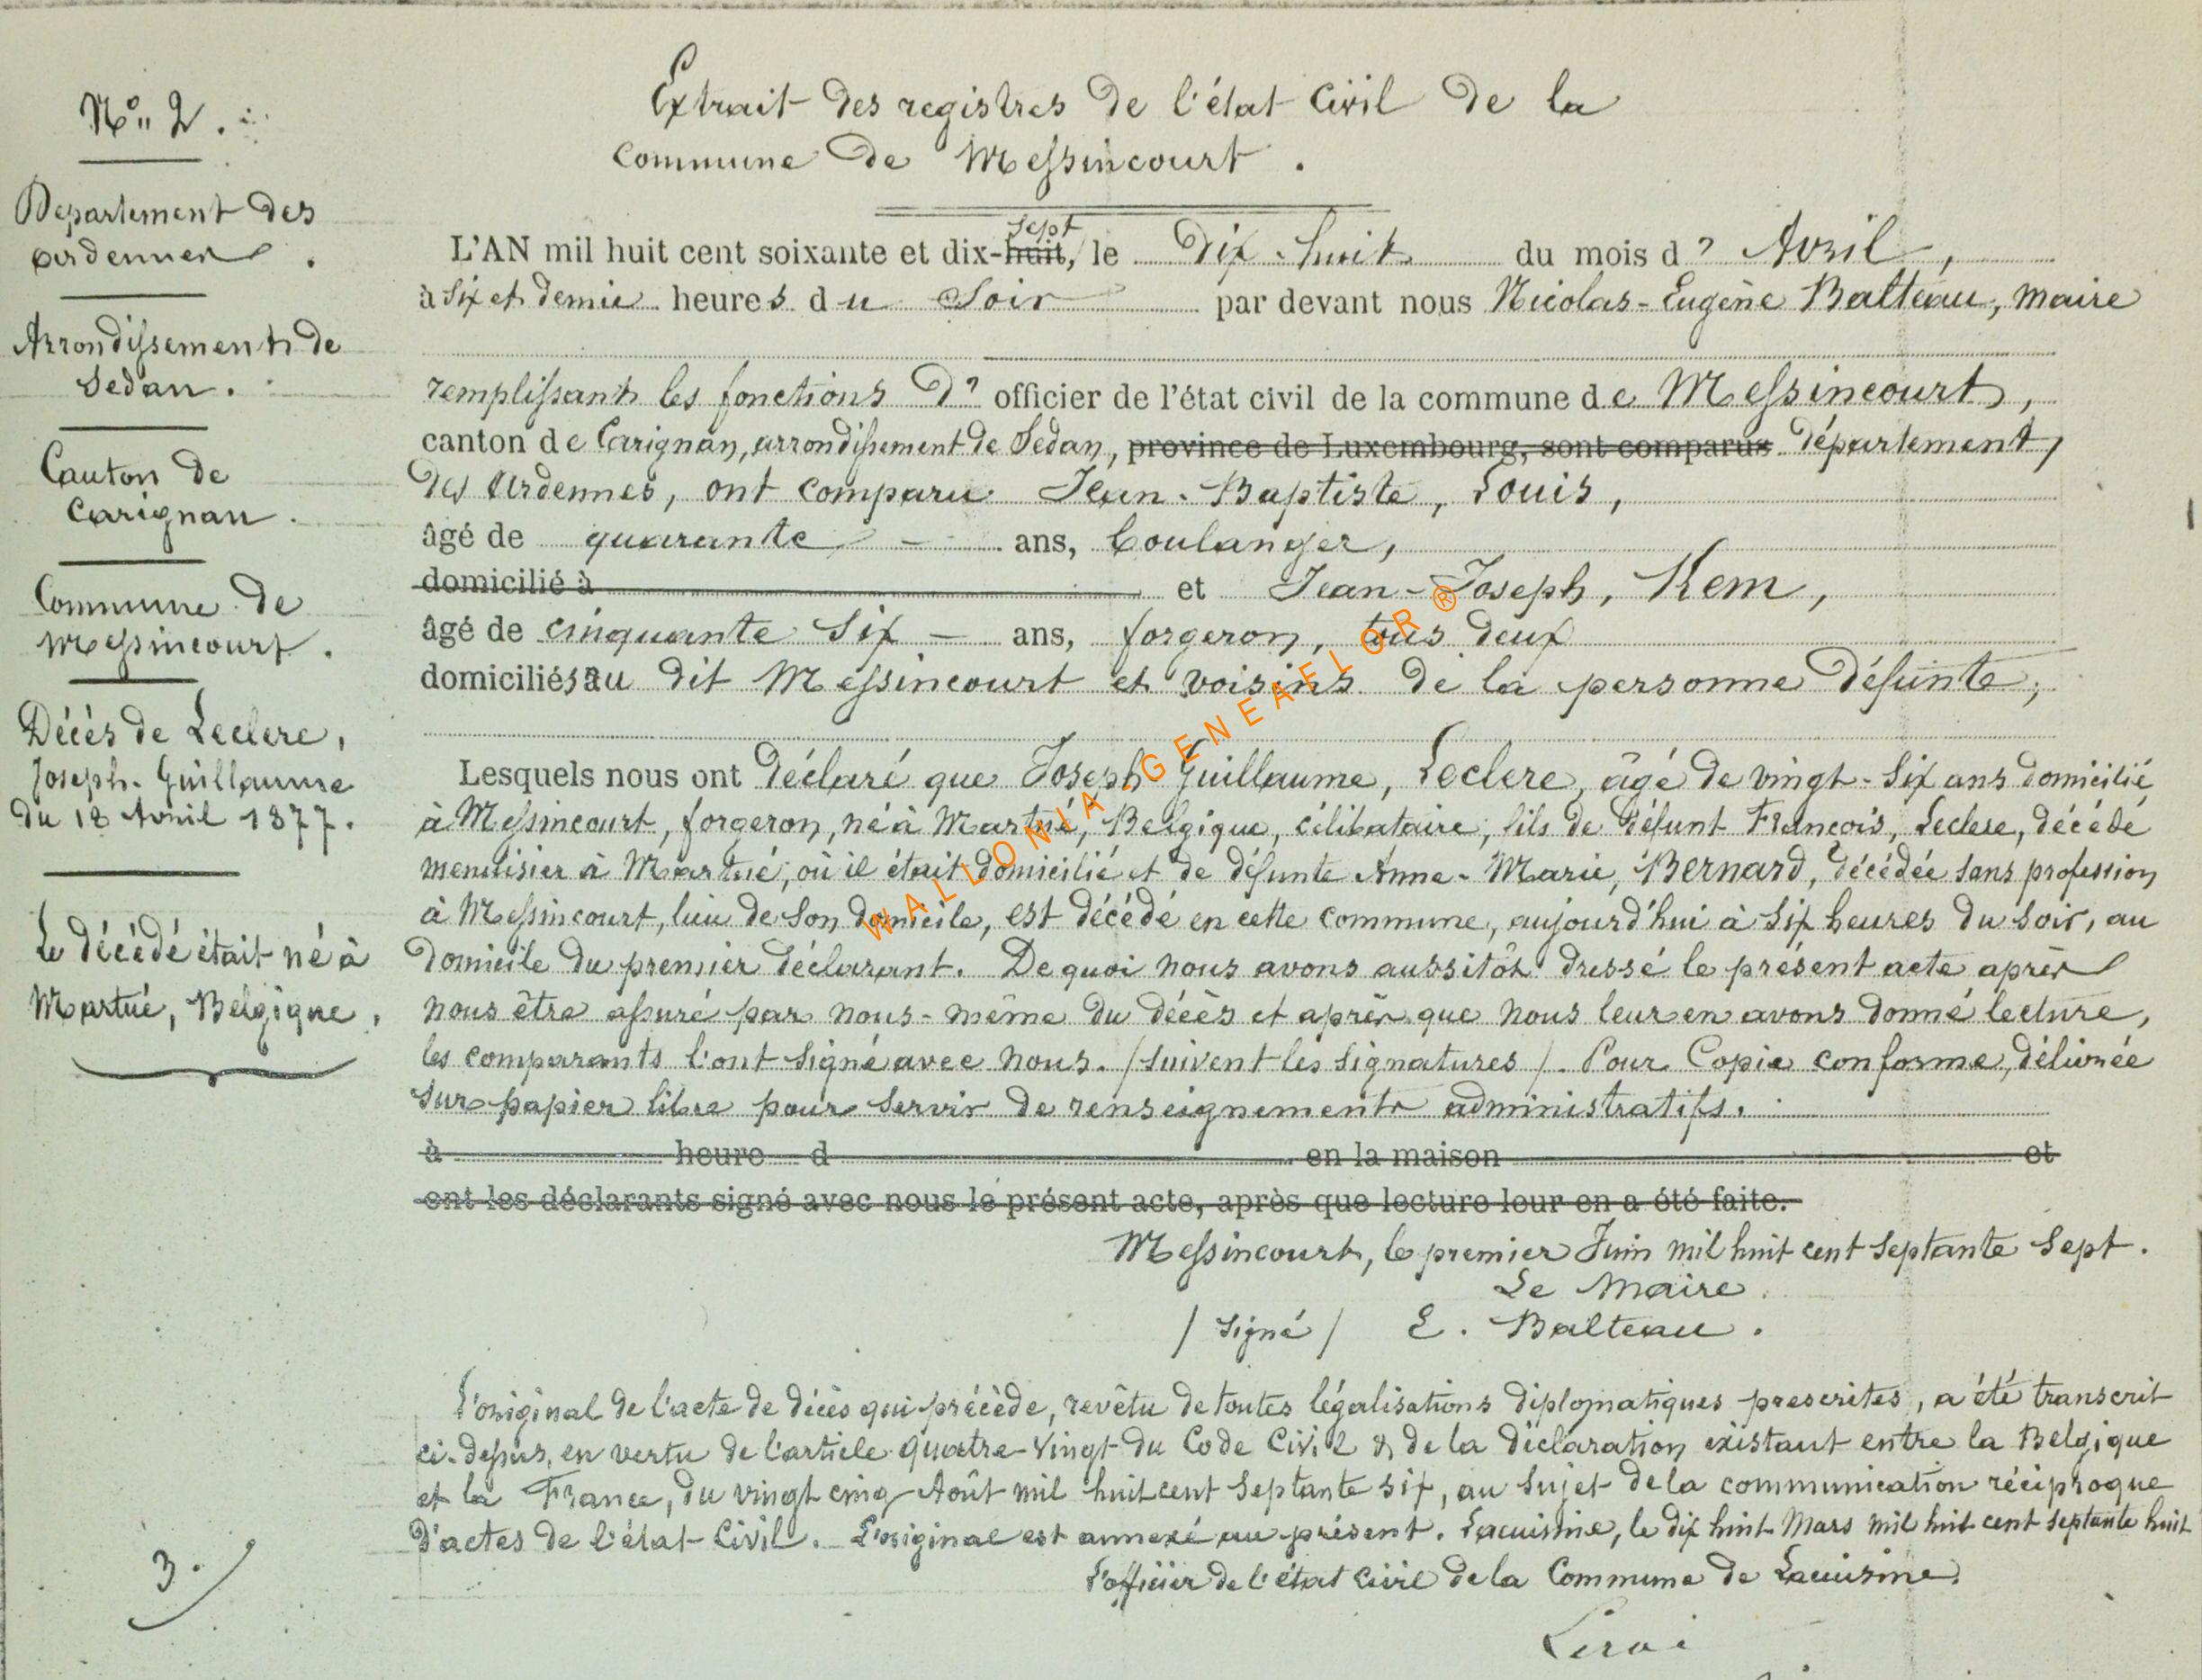 N° 2.
Département des
Ardennes.
Arrondissement de
Sedan.
Canton de
Carignan.
Commune de
Messincourt.
Décès de Leclere,
Joseph-Guillaume
du 18 Avril 1877.
Le décédé était né à
Martué, Belgique.
3.
Extrait des registres de l'état civil de la
commune de Messincourt.
sept
L'AN mil huit cent soixante et dix-huit, le Dix huit du mois d' Avril,
à Six et demie heures du Soir par devant nous Nicolas-Eugène Balteau, maire
remplissant les fonctions d' officier de l'état civil de la commune de Messincourt,
canton de Carignan, arrondissement de Sedan, province de Luxembourg, sont comparus département
des Ardennes, ont comparu Jean-Baptiste, Louis,
âgé de quarante ans, boulanger,
domicilié à et Jean-Joseph, Kem,
âgé de cinquante Six ans, forgeron, tous deux
domiciliés au dit Messincourt et voisins de la personne défunte,
Lesquels nous ont déclaré que Joseph Guillaume, Leclere, âgé de vingt-six ans domicilié
à Messincourt, forgeron, né à Martué, Belgique, célibataire, fils de défunt François, Leclere, décédé
menuisier à Martué, où il était domicilié et de défunte Anne-Marie, Bernard, décédée sans profession
à Messincourt, lieu de son domicile, est décédé en cette commune, aujourd'hui à six heures du soir, au
domicile du premier déclarant. De quoi nous avons aussitôt dressé le présent acte après
nous être assuré par nous-même du décès et après que nous leur en avons donné lecture,
les comparants l'ont signé avec nous. /suivent les signatures/. Pour Copie conforme, délivrée
sur papier libre pour servir de renseignements administratifs.
à heure d en la maison et
ont les déclarants signé avec nous le présent acte, après que lecture leur en a été faite.
Messincourt, le premier Juin mil huit cent septante sept.
Le Maire
/signé/ E. Balteau.
L'original de l'acte de décès qui précède, revêtu de toutes légalisations diplomatiques prescrites, a été transcrit
ci-dessus, en vertu de l'article quatre-vingt du Code Civil & de la déclaration existant entre la Belgique
et la France, du vingt cinq Août mil huit cent septante six, au sujet de la communication réciproque
d'actes de l'état-civil. L'original est annexé au présent. Lacuisine, le dix huit Mars mil huit cent septante huit
L'officier de l'état civil de la Commune de Lacuisine.
WALLONIA GENEAFLOR ®